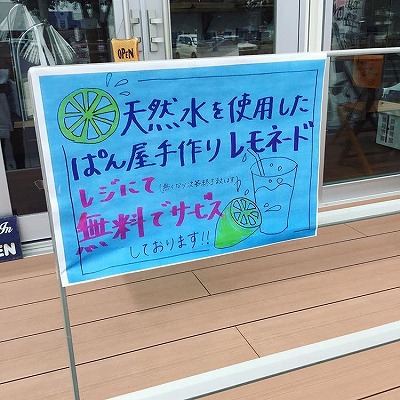 OPEN
天然水を使用した
ぱん屋手作りレモネード
レジにて
(無くなり次第終了致します)
無料でサービス
しております!!
In
EN